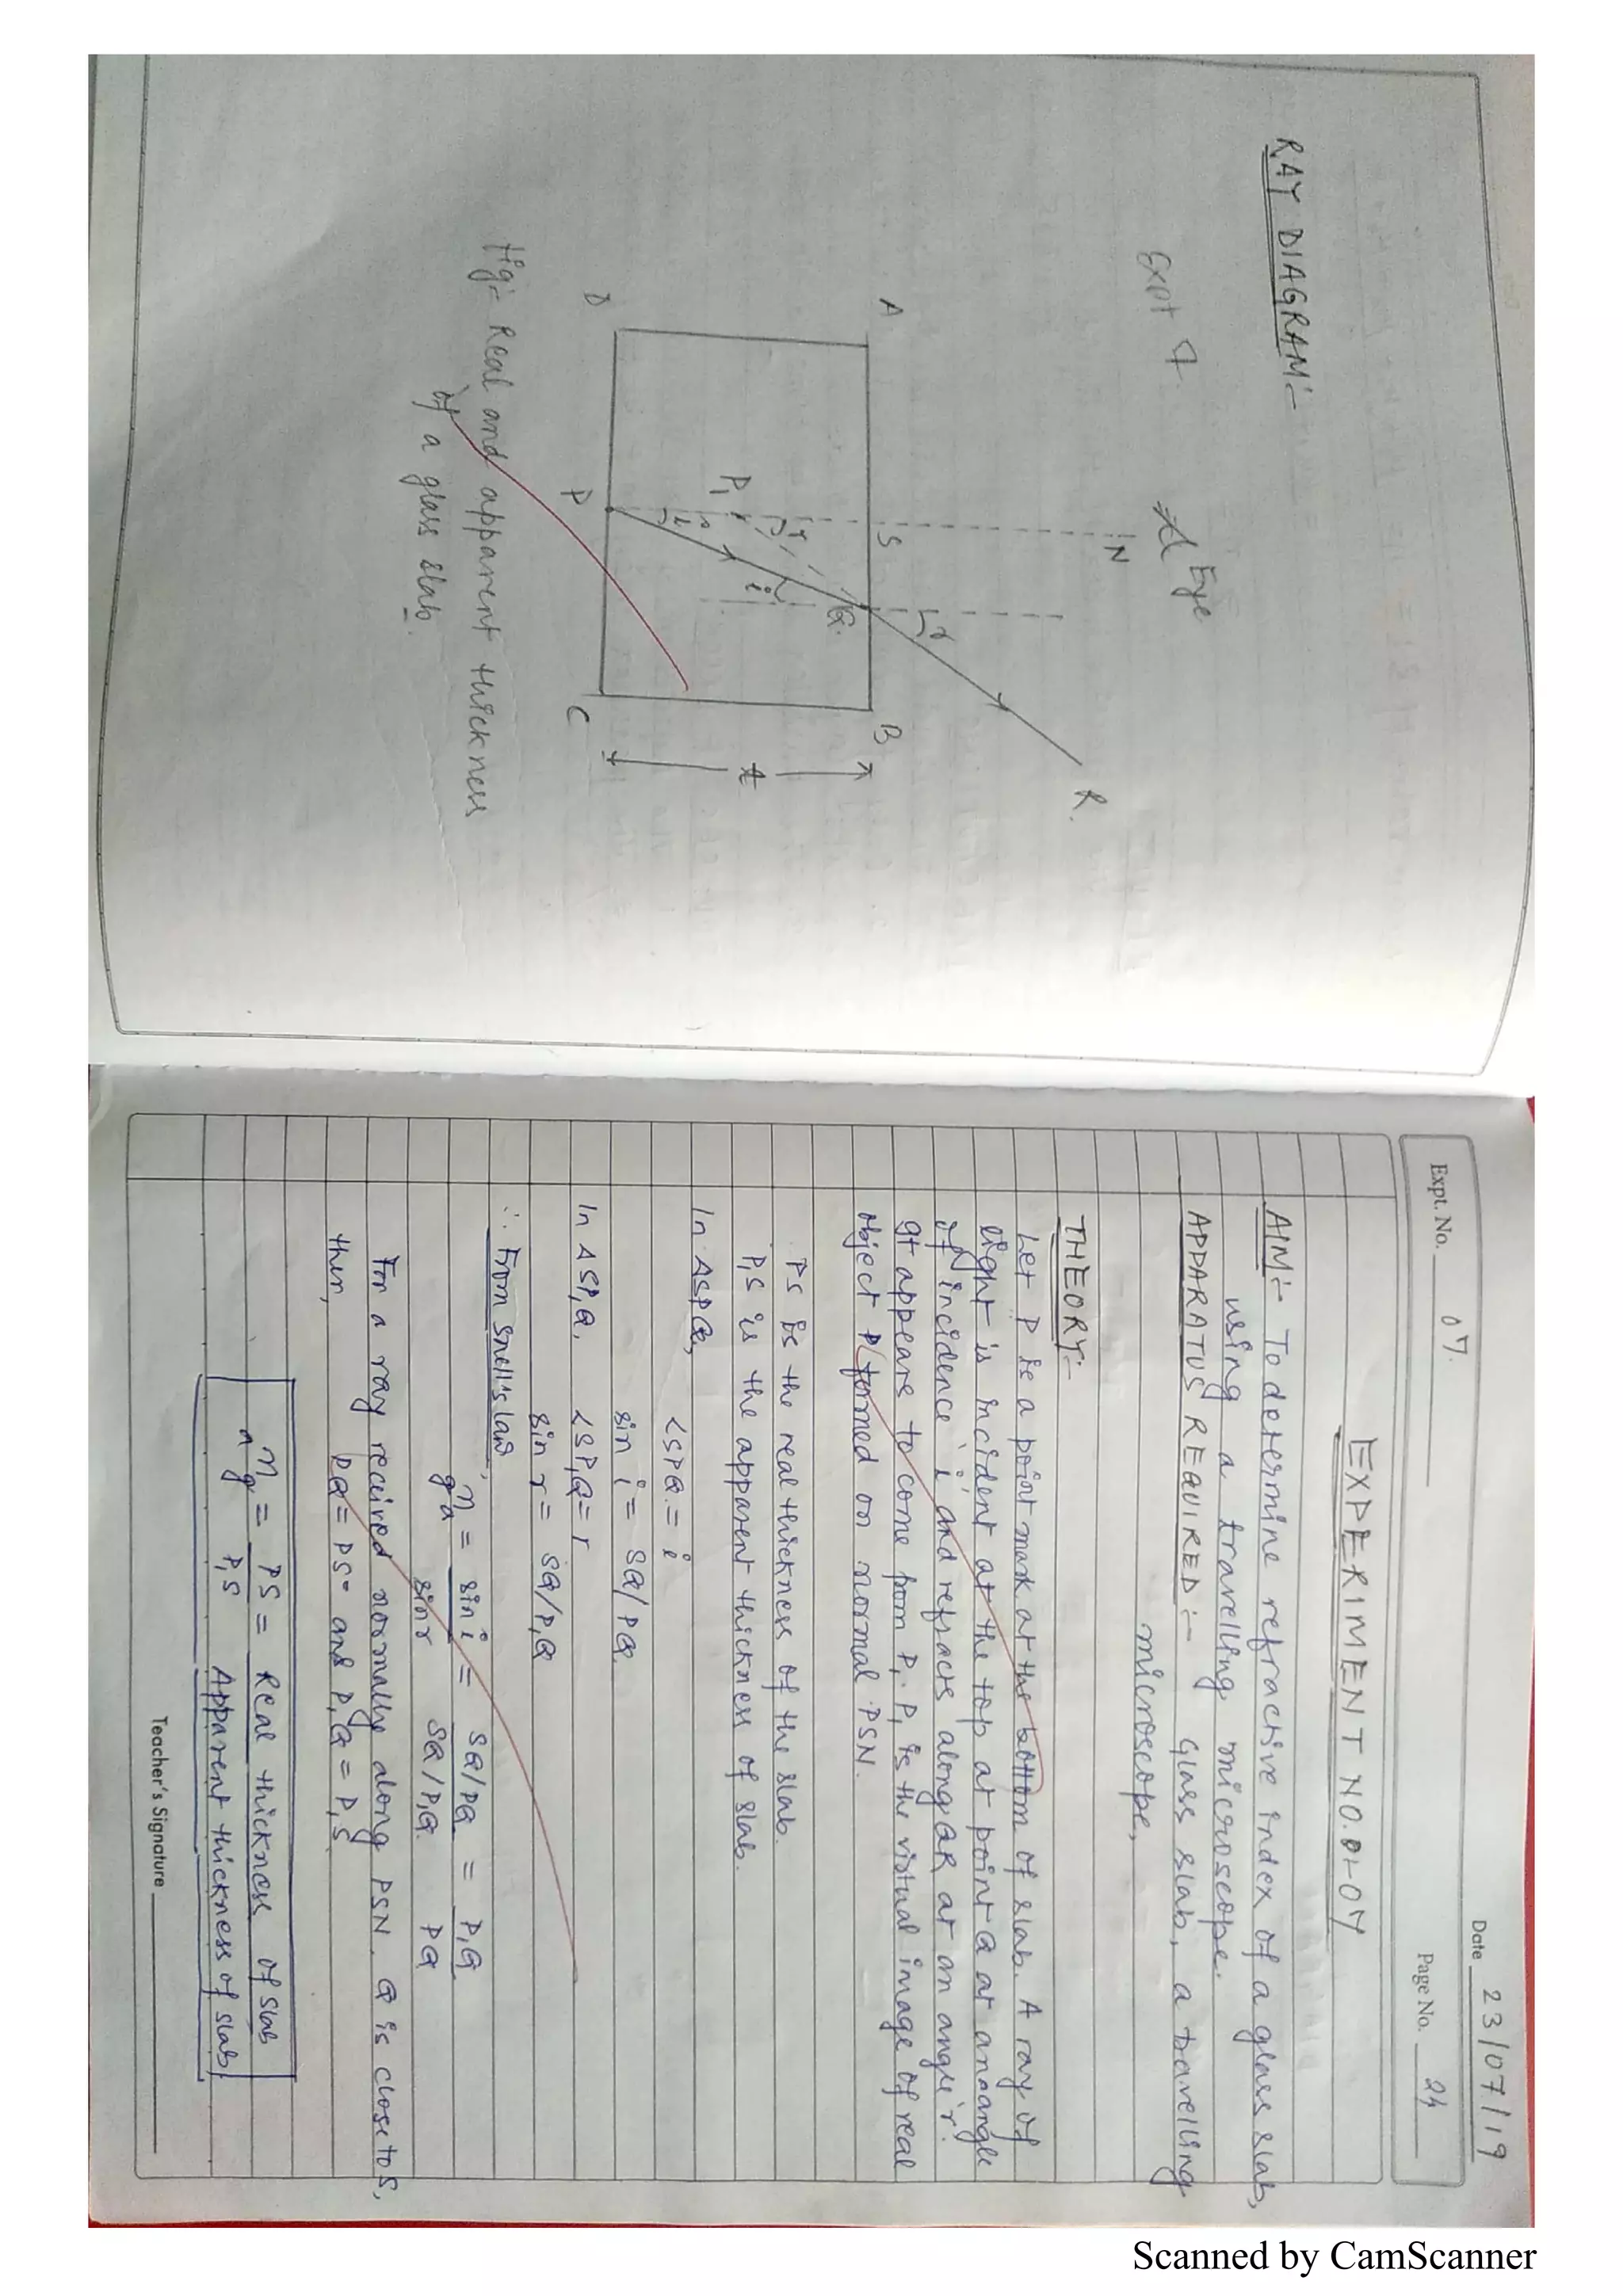 RAY DIAGRAM:-
Expt 7.
Eye
N
R.
A
S
B
r
Q.
r
i
P1
i
t
D
P
C
Fig:- Real and apparent thickness
of a glass slab.
Date 23/07/19
Expt. No. 07.
Page No. 24
EXPERIMENT NO. 07
AIM:- To determine refractive index of a glass slab,
using a travelling microscope.
APPARATUS REQUIRED:- Glass slab, a travelling
microscope,
THEORY:-
Let P is a point mark at the bottom of slab. A ray of
light is incident at the top at point Q at an angle
of incidence 'i' and refracts along QR at an angle 'r'.
It appears to come from P1. P1 is the virtual image of real
object P formed on normal PSN.
PS is the real thickness of the slab.
P1S is the apparent thickness of slab.
In ΔSPQ,
<SPQ = i
sin i = SQ/PQ
In ΔSP1Q, <SP1Q = r
sin r = SQ/P1Q
∴ From snell's law,
gna = sin i = SQ/PQ = P1Q
sin r SQ/P1Q PQ
For a ray received normally along PSN. Q is close to S,
then, PQ = PS and P1Q = P1S.
ang = PS = Real thickness of slab
P1S Apparent thickness of slab
Teacher's Signature
Scanned by CamScanner